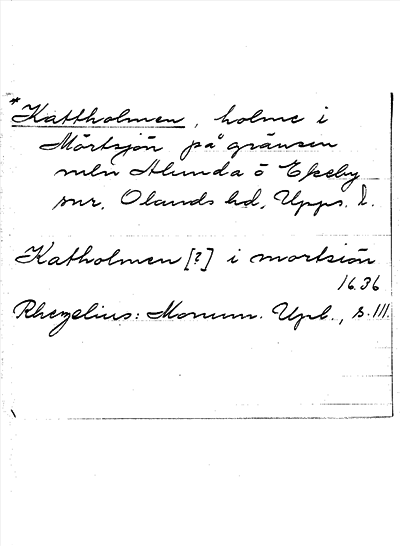 *Kattholmen, holme i
Mörtsjön på gränsen
mln Alunda o Ekeby
snr, Olands hd, Upps. l.
Katholmen [?] i mortsiön
1636
Rhezelius: Monum. Upl., s. 111.